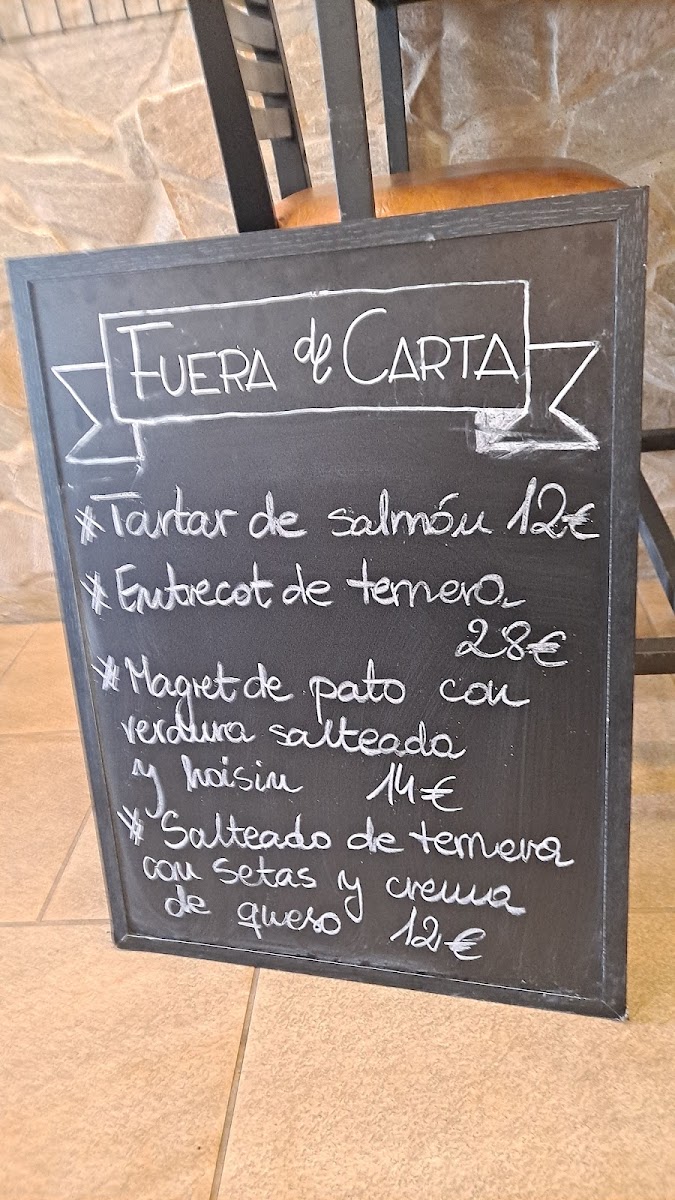 FUERA de CARTA
* Tartar de salmón 12€
* Entrecot de ternera
28€
* Magret de pato con
verdura salteada
y hoisin 14€
* Salteado de ternera
con setas y crema
de queso 12€